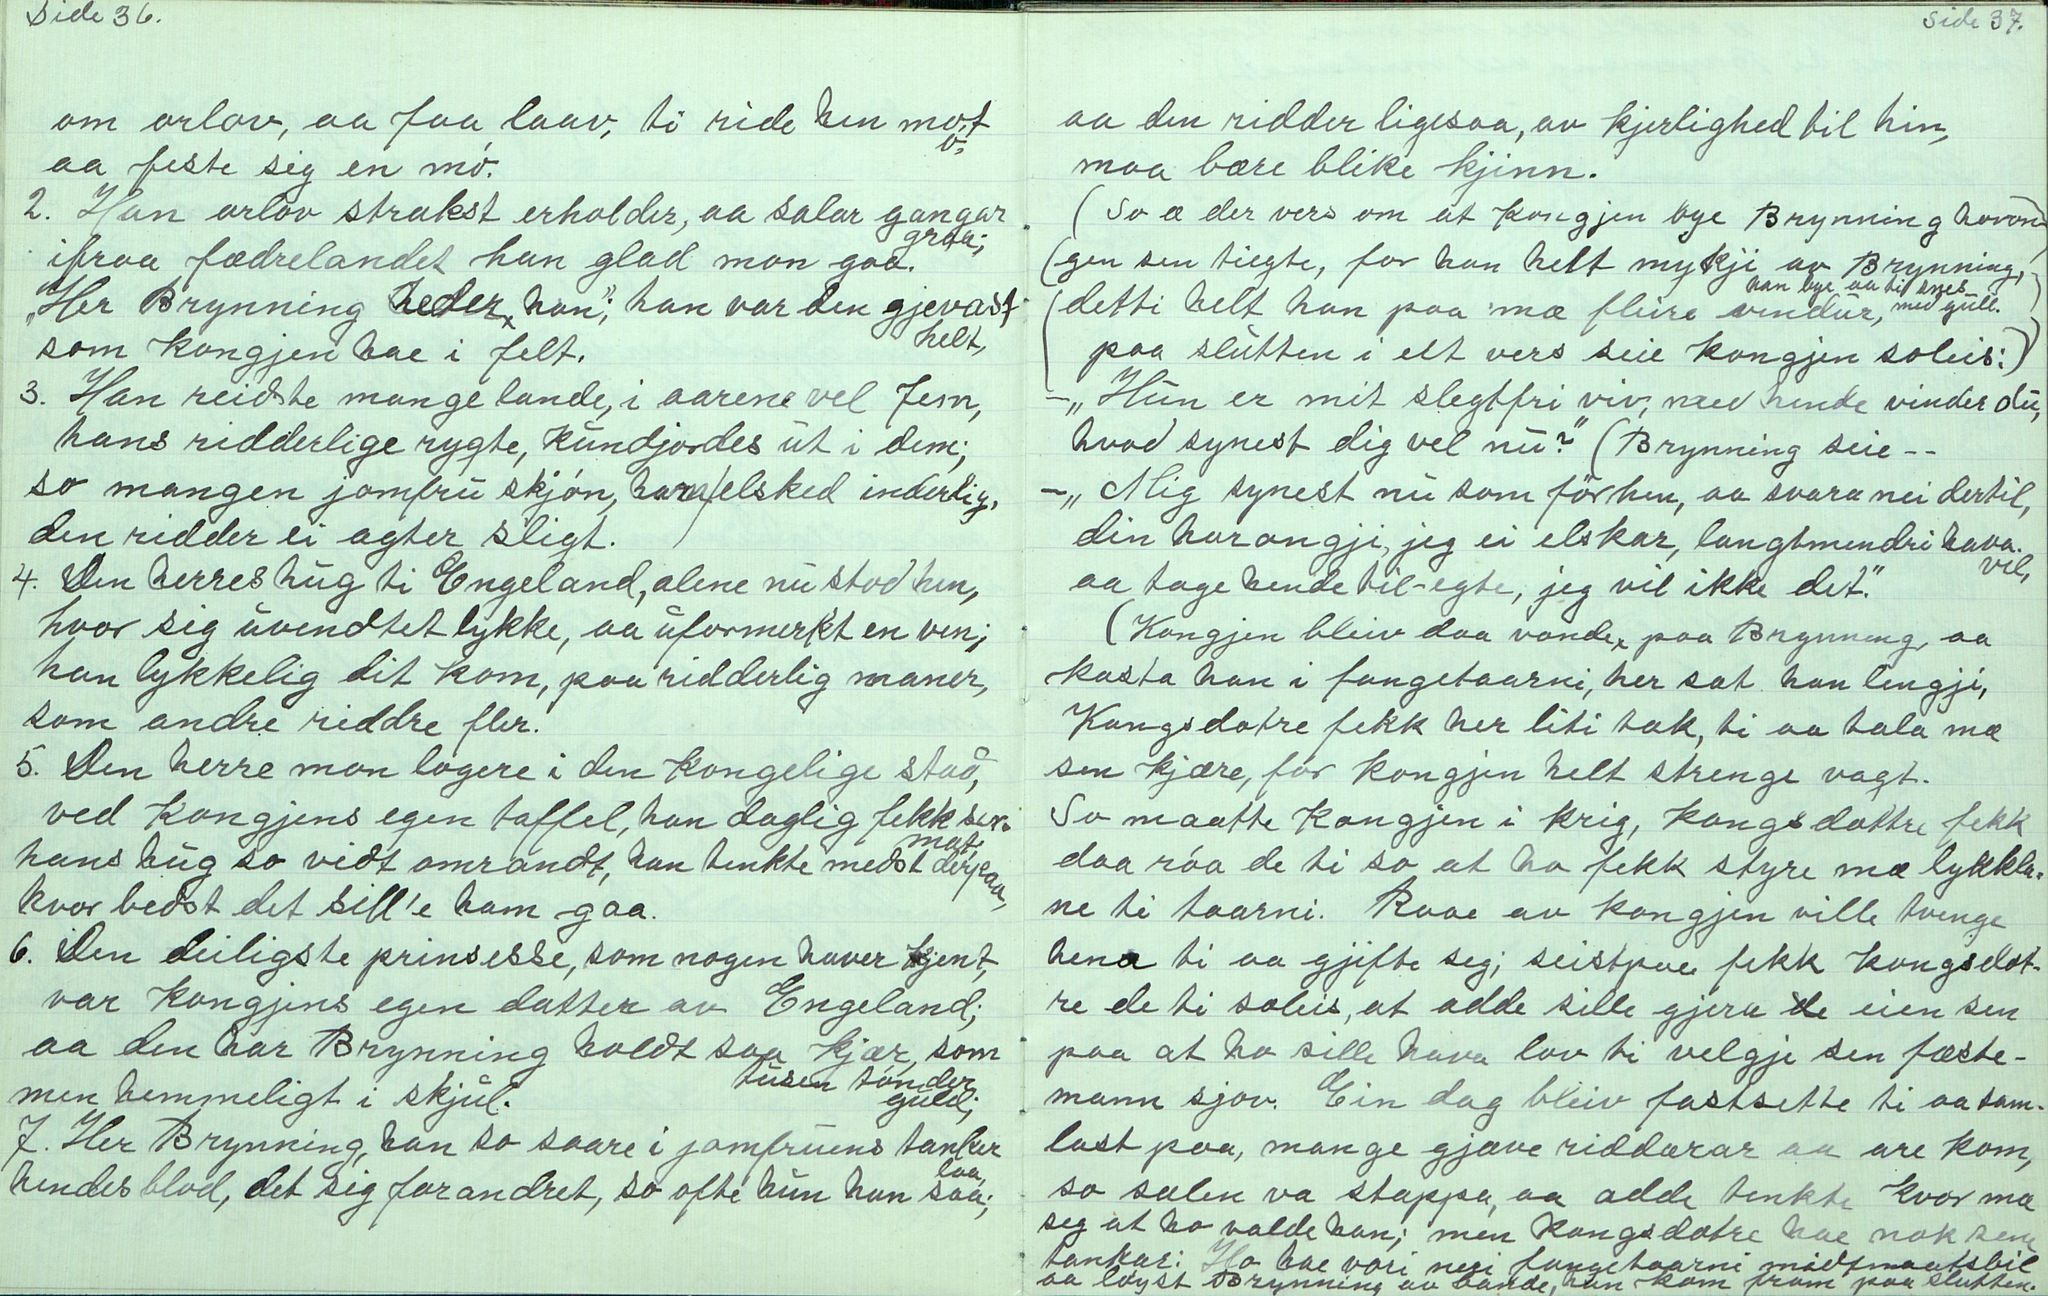 Side 36.
om orlov, aa faa laav, ti ride hen mot ö;
aa feste sig en mö.
2. Han orlov strakst erholder, aa salar gangar graa;
ifraa fædrelandet han glad mon gaa.
"Her Brynning heder han"; han var den gjevast helt,
som kongjen hae i felt.
3. Han reidste mange lande, i aarene vel fem,
hans ridderlige rygte, kundjordes ut i dem;
so mangen jomfru skjön, han elsked inderlig,
den ridder ei agter sligt.
4. Den herres hug ti Engeland, alene nu stod hen,
hvor sig uvendtet lykke, aa uformerkt en ven;
han lykkelig dit kom, paa ridderlig maner,
som andre riddre fler.
5. Den herre mon logere i den kongelige stad,
ved Kongjens egen taffel, han daglig fekk sin mat,
hans hug so vidt omrandt, han tenkte medst derpaa,
kvor bedst det sill'e ham gaa.
6. Den deiligste prinsesse, som nogen haver kjent,
var Kongjens egen datter av Engeland;
aa den har Brynning holdt saa kjær, som tusen tönder guld;
men hemmeligt i skjul.
7. Her Brynning, han so saare i jomfruens tanker laa,
hendes blod, det sig forandret, so ofte hun han saa;
Side 37.
aa den ridder ligesaa, av kjerlighed til hin,
maa bære blike kjinn.
(So æ der vers om at Kongjen bye Brynning havon-)
(gen sen tiegte, for han helt mykji av Brynning,)
(detti helt han paa mæ fleire vendur, han bye aa til ... med gull.)
paa slutten i ett vers seie kongjen soleis:)
-"Hun er mit slegtfri viv, med hende vinder du,
hvad synest dig vel nu?" (Brynning seie--
-"Mig synest nu som förhen, aa svara nei dertil,
din harangji, jeg ei elskar, langtmendri hava vil,
aa tage hende til-egte, jeg vil ikke det."
(Kongjen bleiv daa vonde paa Brynning, aa
kasta han i fangetaarni, her sat han lengji,
Kongsdotre fekk her liti tak, ti aa tala mæ
sen kjære, for kongjen helt strenge vagt.
So maatte Kongjen i krig, kongsdottre fekk
daa röa de ti so at ho fekk styre mæ lykkla-
ne ti taarni. Raae av kongjen ville tvenge
hena ti aa gjifte seg; seistpaa fekk kongsdot-
re de ti soleis, at adde sille gjera de eien sen
paa at ho sille hava lov ti velgje sen fæste-
mann sjov. Ein dag bleiv fastsette ti aa sam-
last paa, mange gjæve riddarar aa are kom,
so salen va stappa, aa adde tenkte kvor mæ
seg at ho valde han; men kongsdotre hae nok sene
tankar: Ho hae vori nei i fangetaarni midtnaatsbil
aa löyst Brynning av bande, han kom fram paa slutten.